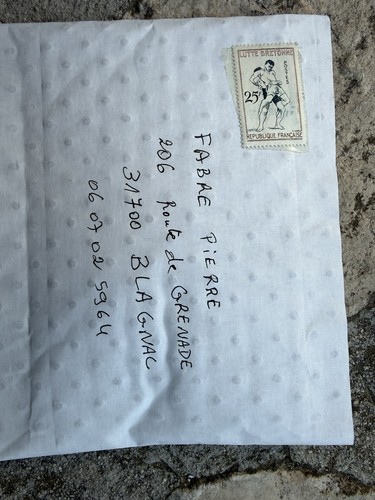 LUTTE BRETONNE
POSTES
25F
REPUBLIQUE FRANÇAISE
FABRE PIERRE
206 Route de GRENADE
31700 BLAGNAC
06 07 02 5964